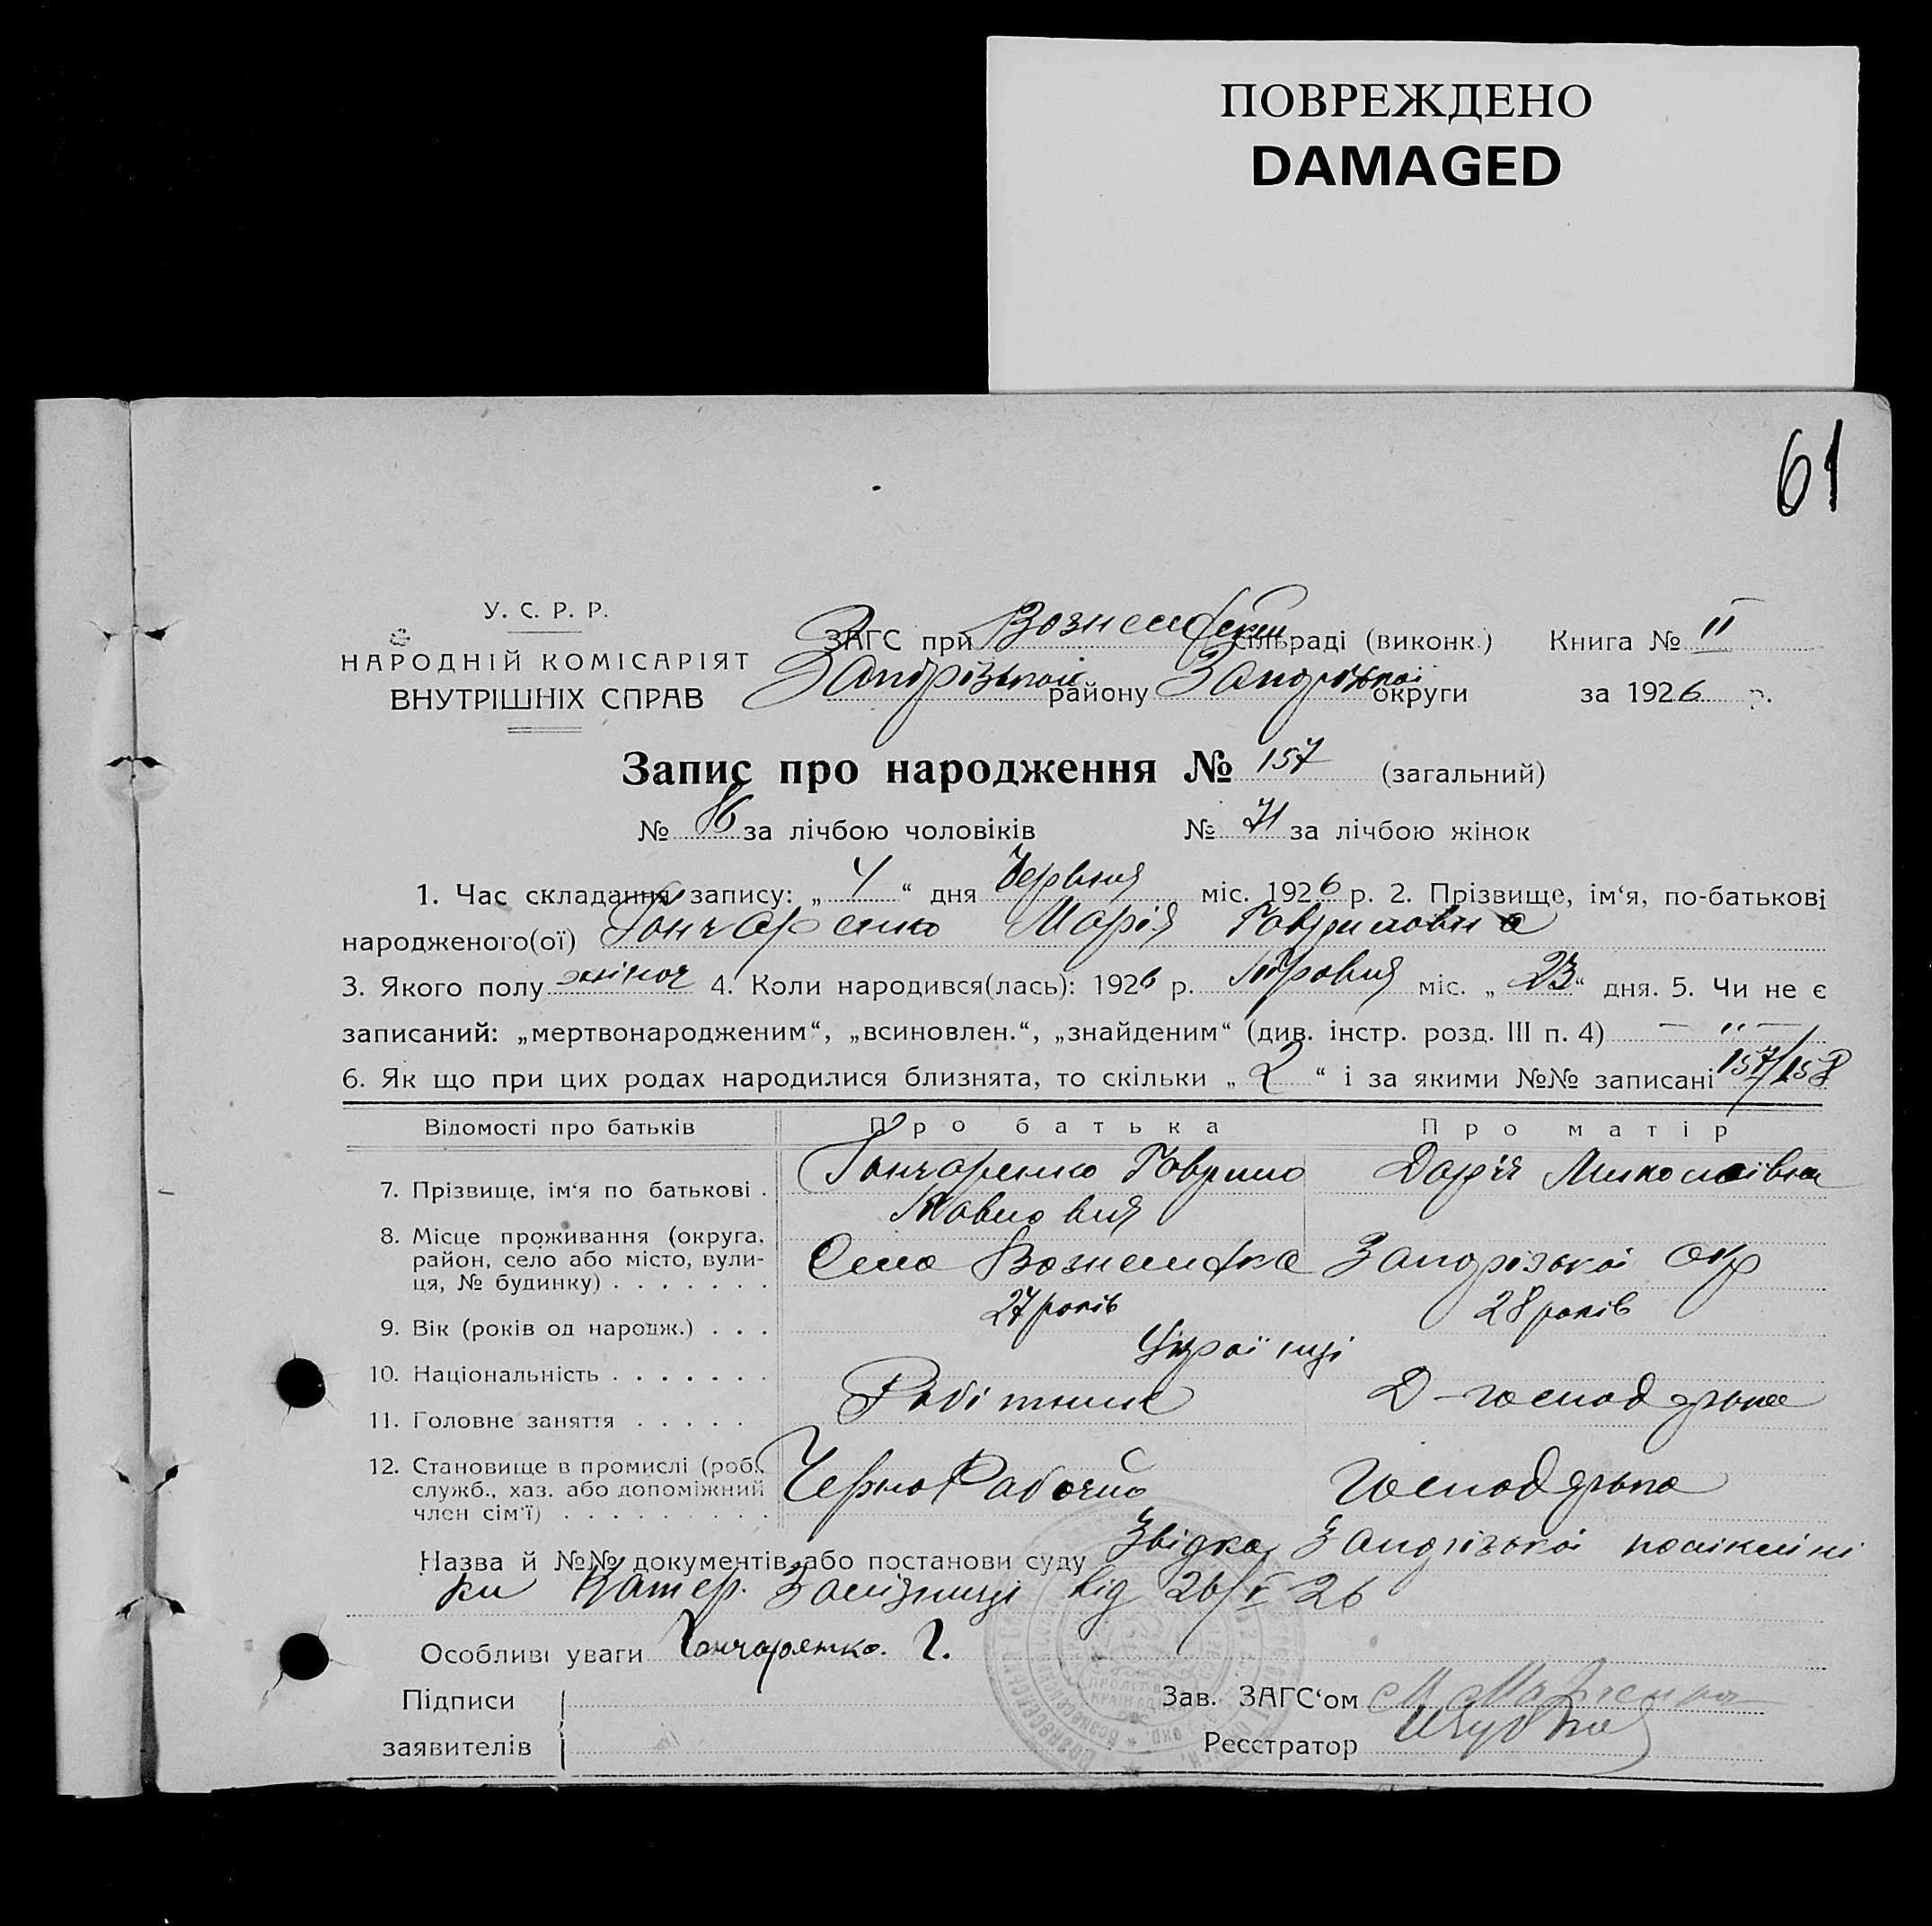 ПОВРЕЖДЕНО
DAMAGED
61
У. С. Р. Р.
НАРОДНІЙ КОМІСАРІЯТ
ВНУТРІШНІХ СПРАВ
ЗАГС при Вознесенській сільраді (виконк.) Книга № II
Запорізького району Запорізької округи за 1926 р.
Запис про народження № 157 (загальний)
№ 86 за лічбою чоловіків № 71 за лічбою жінок
1. Час складання запису: „ 4 “ дня Червня міс. 1926 р. 2. Прізвище, ім‘я, по-батькові
народженого(ої) Гончаренко Марія Гавриловна
3. Якого полу жіноч 4. Коли народився(лась): 1926 р. Травня міс. „ 23 “ дня. 5. Чи не є
записаний: „мертвонародженим“, „всиновлен.“, „знайденим“ (див. інстр. розд. III п. 4) — „ —
6. Як що при цих родах народилися близнята, то скільки „ 2 “ і за якими №№ записані 157/158
Відомості про батьків Про батька Про матір
7. Прізвище, ім‘я по батькові . Гончаренко Гаврило Дар'я Миколаївна
Павловия
8. Місце проживання (округа, район, село або місто, вулиця, № будинку) . . . . . . . Село Вознесенка Запорізької окр
9. Вік (років од народж.) . . . 27 років 28 років
10. Національність . . . . . . . Українці
11. Головне заняття . . . . . Робітник Д-господарька
12. Становище в промислі (роб., служб., хаз. або допоміжний член сім‘ї) . . . . . . . . . ЧерноРабочий Господарька
Назва й №№ документів або постанови суду Звідка Запорізької поликліні
ки Катер. Залізниці від 26/V 26
Особливі уваги Гончаренко. Г.
Підписи
заявителів
Зав. ЗАГС‘ом
Реєстратор